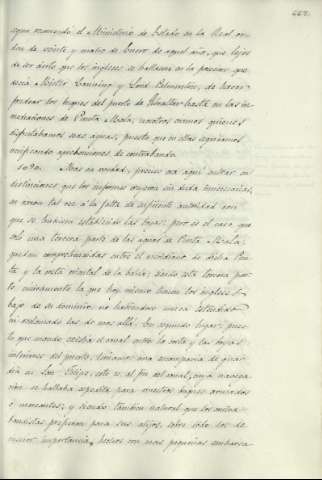 442.
segun recuerda el Ministerio de Estado en la Real or-
den de veinte y cuatro de Enero de aquel año, que lejos
de ser cierto que los ingleses se hallasen en la posesion que
decia Mister Canning y Lord Palmerston, de hacer
fondear los buques del puerto de Gibraltar hasta en las in-
mediaciones de Punta Mala, nosotros eramos quienes
disfrutabamos esas aguas, puesto que en ellas seguiamos
verificando aprehensiones de contrabando.
Mas en verdad, preciso era aqui entrar en
distinciones que los informes creyeron sin duda innecesarias,
en razon tal vez á la falta de suficiente autoridad con
que se hubiesen establecido las bojas; pero es el caso que
solo una tercera parte de las aguas de Punta Mala
quedan comprendidas entre el meridiano de dicha Pun-
ta y la costa oriental de la bahia; siendo esta tercera par-
te unicamente la que hoy mismo hacen los ingleses
bajo de su dominio no habiendose nunca estendido
ni reclamado las de mas allá. En segundo lugar, pues-
to que mandó cesiba el canal entre la costa y las boyas
esteriores del puerto, teniamos una escampavia de guar-
dia en San Felipe, esto es al fin del canal, cuya navega-
cion se hallaba espedita para nuestros buques armados
ó mercantes; y siendo tambien natural que los contra-
bandistas prefieran para sus alijos, sobre todo los de
menor importancia, hechos con mas pequeñas embarca-